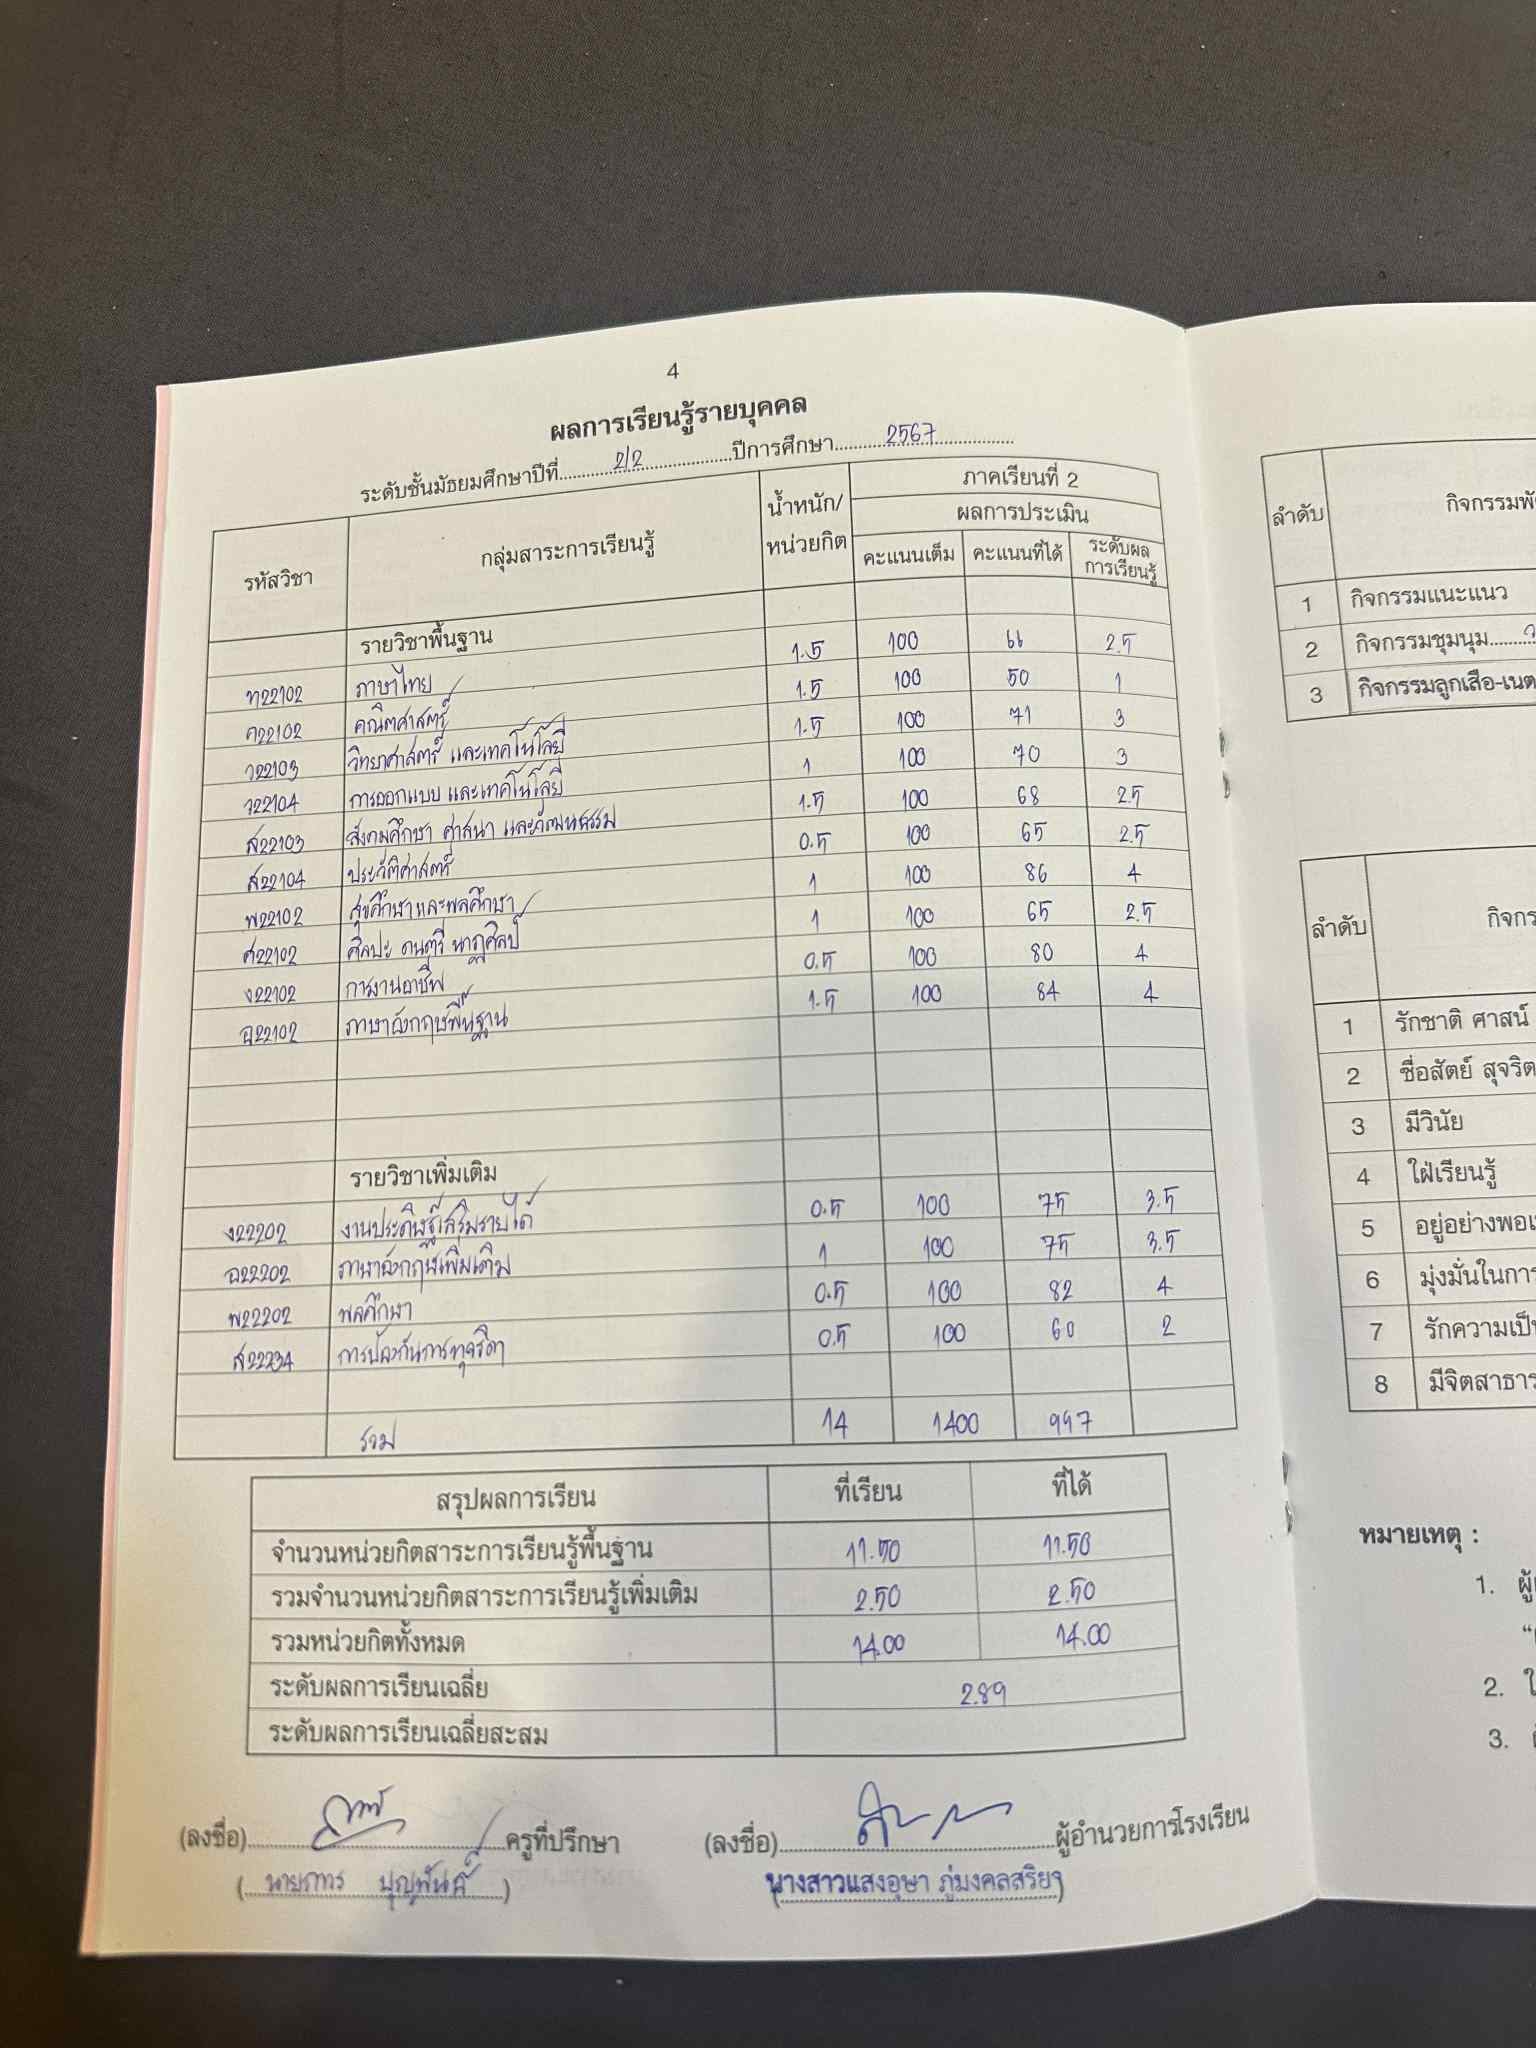 4
ผลการเรียนรู้รายบุคคล
ระดับชั้นมัธยมศึกษาปีที่ 2/2 ปีการศึกษา 2567
รหัสวิชา กลุ่มสาระการเรียนรู้ น้ำหนัก/หน่วยกิต ภาคเรียนที่ 2
ผลการประเมิน
คะแนนเต็ม คะแนนที่ได้ ระดับผลการเรียนรู้
รายวิชาพื้นฐาน
ท22102 ภาษาไทย 1.5 100 66 2.5
ค22102 คณิตศาสตร์ 1.5 100 50 1
ว22103 วิทยาศาสตร์ และเทคโนโลยี 1.5 100 71 3
ว22104 การออกแบบ และเทคโนโลยี 1 100 70 3
ส22103 สังคมศึกษา ศาสนา และวัฒนธรรม 1.5 100 68 2.5
ส22104 ประวัติศาสตร์ 0.5 100 65 2.5
พ22102 สุขศึกษาและพลศึกษา 1 100 86 4
ศ22102 ศิลปะ ดนตรี นาฏศิลป์ 1 100 65 2.5
ง22102 การงานอาชีพ 0.5 100 80 4
อ22102 ภาษาอังกฤษพื้นฐาน 1.5 100 84 4
รายวิชาเพิ่มเติม
ง22202 งานประดิษฐ์เสริมรายได้ 0.5 100 75 3.5
อ22202 ภาษาอังกฤษเพิ่มเติม 1 100 75 3.5
พ22202 พลศึกษา 0.5 100 82 4
ส22234 การป้องกันการทุจริต 0.5 100 60 2
รวม 14 1400 997
สรุปผลการเรียน ที่เรียน ที่ได้
จำนวนหน่วยกิตสาระการเรียนรู้พื้นฐาน 11.50 11.50
รวมจำนวนหน่วยกิตสาระการเรียนรู้เพิ่มเติม 2.50 2.50
รวมหน่วยกิตทั้งหมด 14.00 14.00
ระดับผลการเรียนเฉลี่ย 2.89
ระดับผลการเรียนเฉลี่ยสะสม
(ลงชื่อ) ครูที่ปรึกษา (ลงชื่อ) ผู้อำนวยการโรงเรียน
นางสาวแสงอุษา ภู่มงคลสุริยา
ลำดับ
1 กิจกรรมแนะแนว
2 กิจกรรมชุมนุม
3 กิจกรรมลูกเสือ-เนต
ลำดับ
1 รักชาติ ศาสน์
2 ซื่อสัตย์ สุจริต
3 มีวินัย
4 ใฝ่เรียนรู้
5 อยู่อย่างพอเ
6 มุ่งมั่นในการ
7 รักความเป็น
8 มีจิตสาธาร
หมายเหตุ :
1.
2.
3.